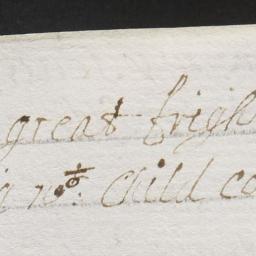 great frigh
wth. Child co